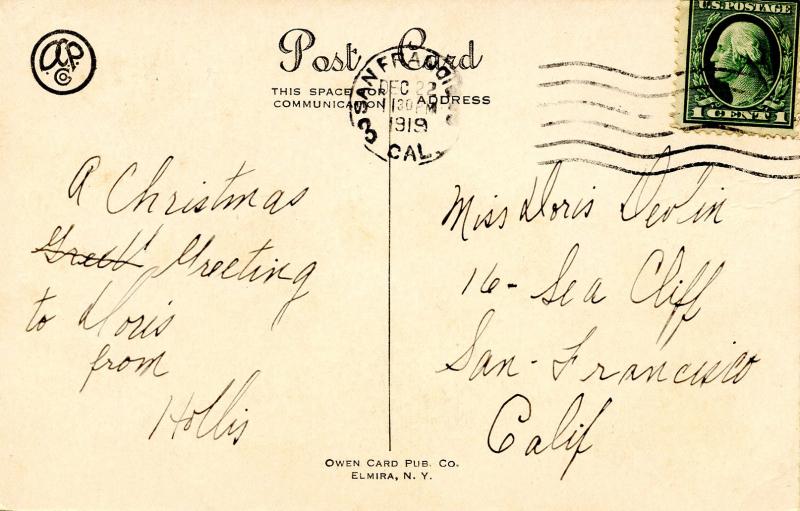 Post Card
THIS SPACE FOR
COMMUNICATION
ADDRESS
SAN FRANCISCO
DEC 22
1 30 PM
1919
CAL.
3
U.S. POSTAGE
1 CENT 1
A Christmas
Greet Greeting
to Doris
from
Hollis
Miss Doris Devlin
16- Sea Cliff
San-Francisco
Calif
OWEN CARD PUB. CO.
ELMIRA, N. Y.